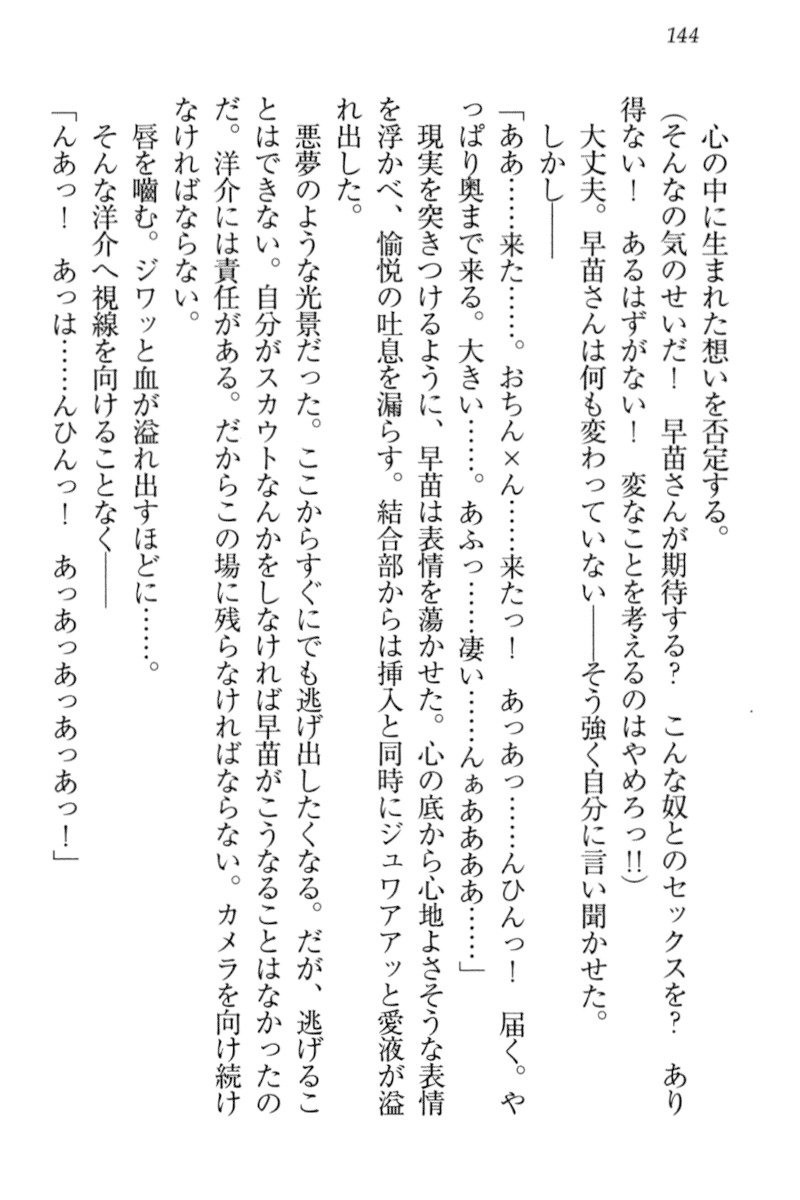 144
心の中に生まれた想いを否定する。
(そんなの気のせいだ！　早苗さんが期待する？　こんな奴とのセックスを？　あり
得ない！　あるはずがない！　変なことを考えるのはやめろっ!!)
大丈夫。早苗さんは何も変わっていない――そう強く自分に言い聞かせた。
しかし――
「ああ……来た……。おちん×ん……来たっ！　あっあっ……んひんっ！　届く。や
っぱり奥まで来る。大きい……。あふっ……凄い……んぁああああ……」
現実を突きつけるように、早苗は表情を蕩かせた。心の底から心地よさそうな表情
を浮かべ、愉悦の吐息を漏らす。結合部からは挿入と同時にジュワアアッと愛液が溢
れ出した。
悪夢のような光景だった。ここからすぐにでも逃げ出したくなる。だが、逃げるこ
とはできない。自分がスカウトなんかをしなければ早苗がこうなることはなかったの
だ。洋介には責任がある。だからこの場に残らなければならない。カメラを向け続け
なければならない。
唇を嚙む。ジワッと血が溢れ出すほどに……。
そんな洋介へ視線を向けることなく――
「んあっ！　あっは……んひんっ！　あっあっあっあっあっ！」